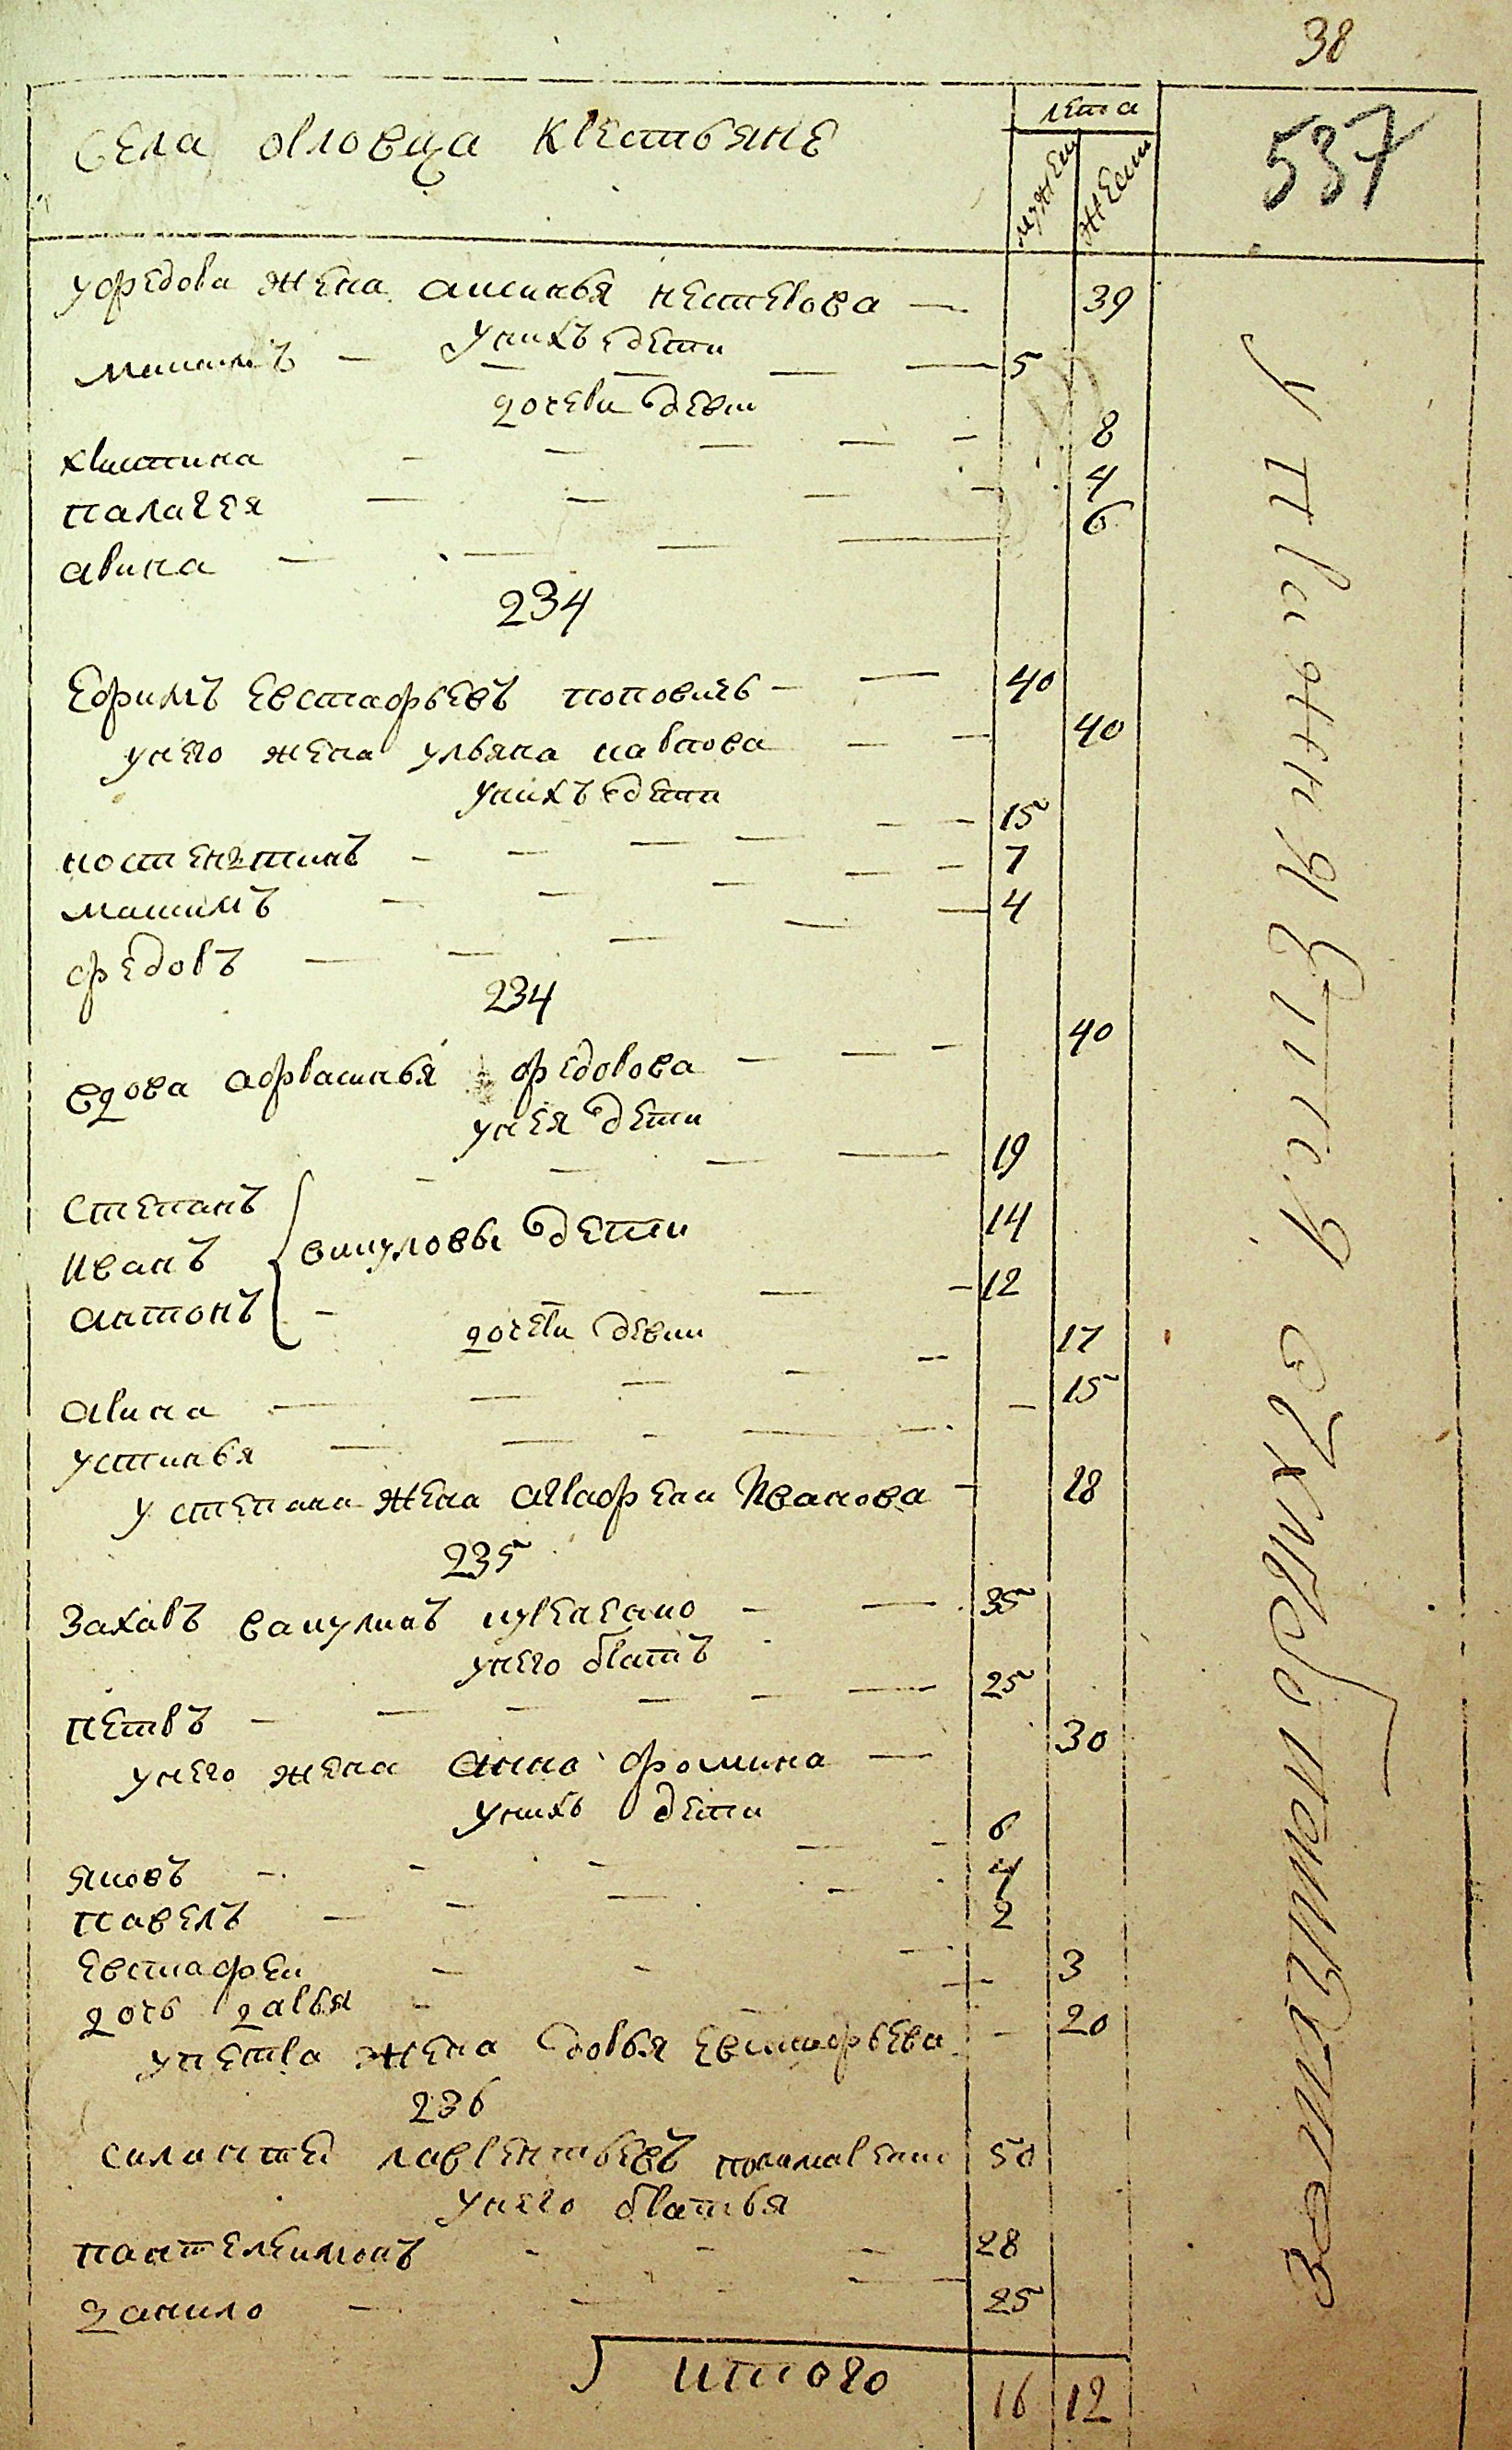 38
537
села овловца крестьяне
лета
мужеи
жеси
у федора жена аксинья нестерова — 39
у них детеи
максимъ — 5
дочери девки
христина — 8
палагея — 4
арина — 6
234
Ефимъ Евстафьевъ поповичь — 40
у него жена ульяна карпова — 40
у нихъ дети
костентинъ — 15
максимъ — 7
федоръ — 4
234
вдова афросинья федорова — 40
у нея дети
степанъ — 19
иванъ викуловы дети 14
антонъ — 12
дочери девки
арина — 17
устинья — 15
у степана жена аграфена Иванова — 18
235
Захаръ вакулинъ — 35
у него братъ
петръ — 25
у него жена анна фомина — 30
у нихъ дети
яковъ — 6
павелъ — 4
евстафеи — 2
дочь дарья — 3
у петра жена дарья евстафьева — 20
236
силантеи лаврентьевъ 50
у него братья
пантелеимонъ — 28
данило — 25
итого 16 12